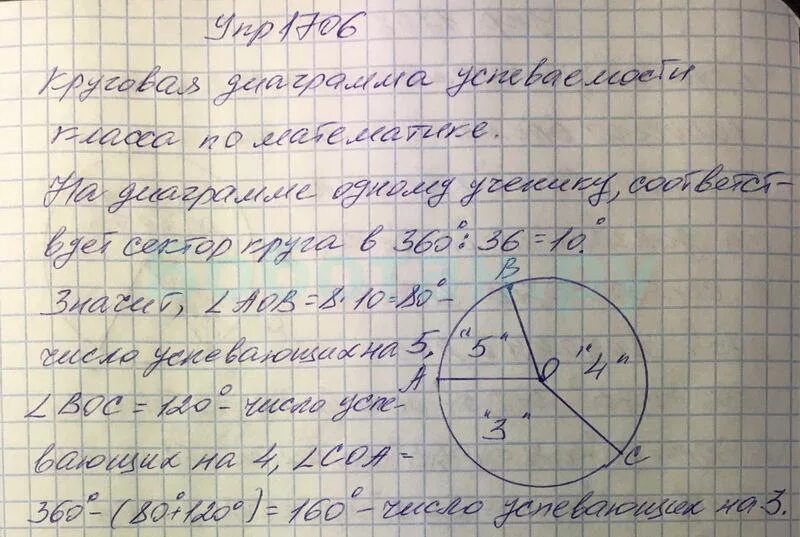 Упр 1706
Круговая диаграмма успеваемости
класса по математике.
На диаграмме одному ученику, соответст-
вует сектор круга в 360° : 36 = 10°.
Значит, ∠AOB = 8 · 10 = 80° -
число успевающих на 5,
∠BOC = 120° - число успе-
вающих на 4, ∠COA =
360° - (80° + 120°) = 160° - число успевающих на 3.
B
"5"
O
"4"
A
"3"
C